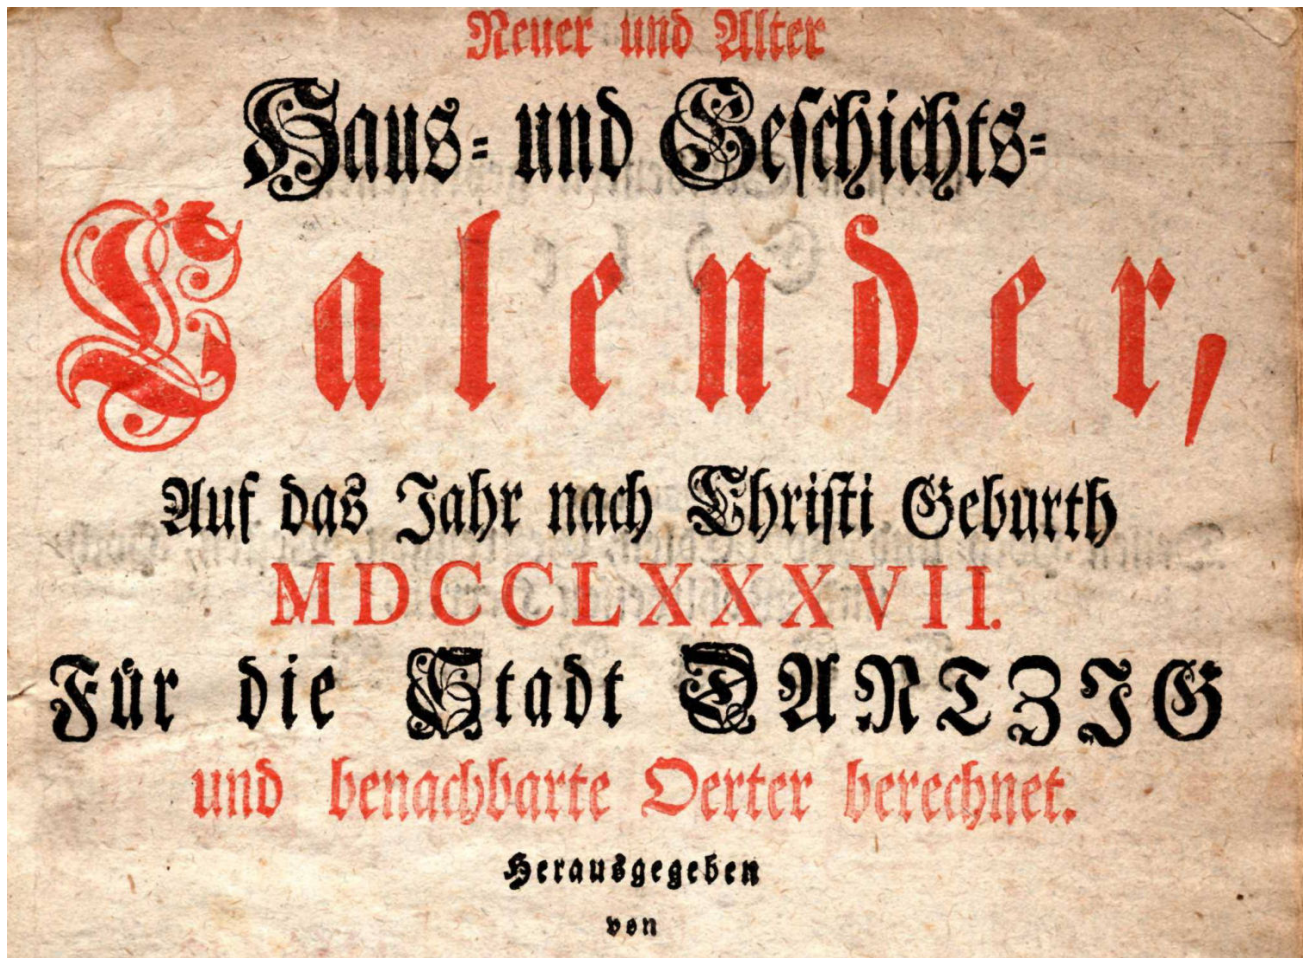 Neuer und Alter
Haus- und Geschichts-
Calender,
Auf das Jahr nach Christi Geburth
MDCCLXXXVII.
Für die Stadt DANTZIG
und benachbarte Oerter berechnet.
Herausgegeben
von